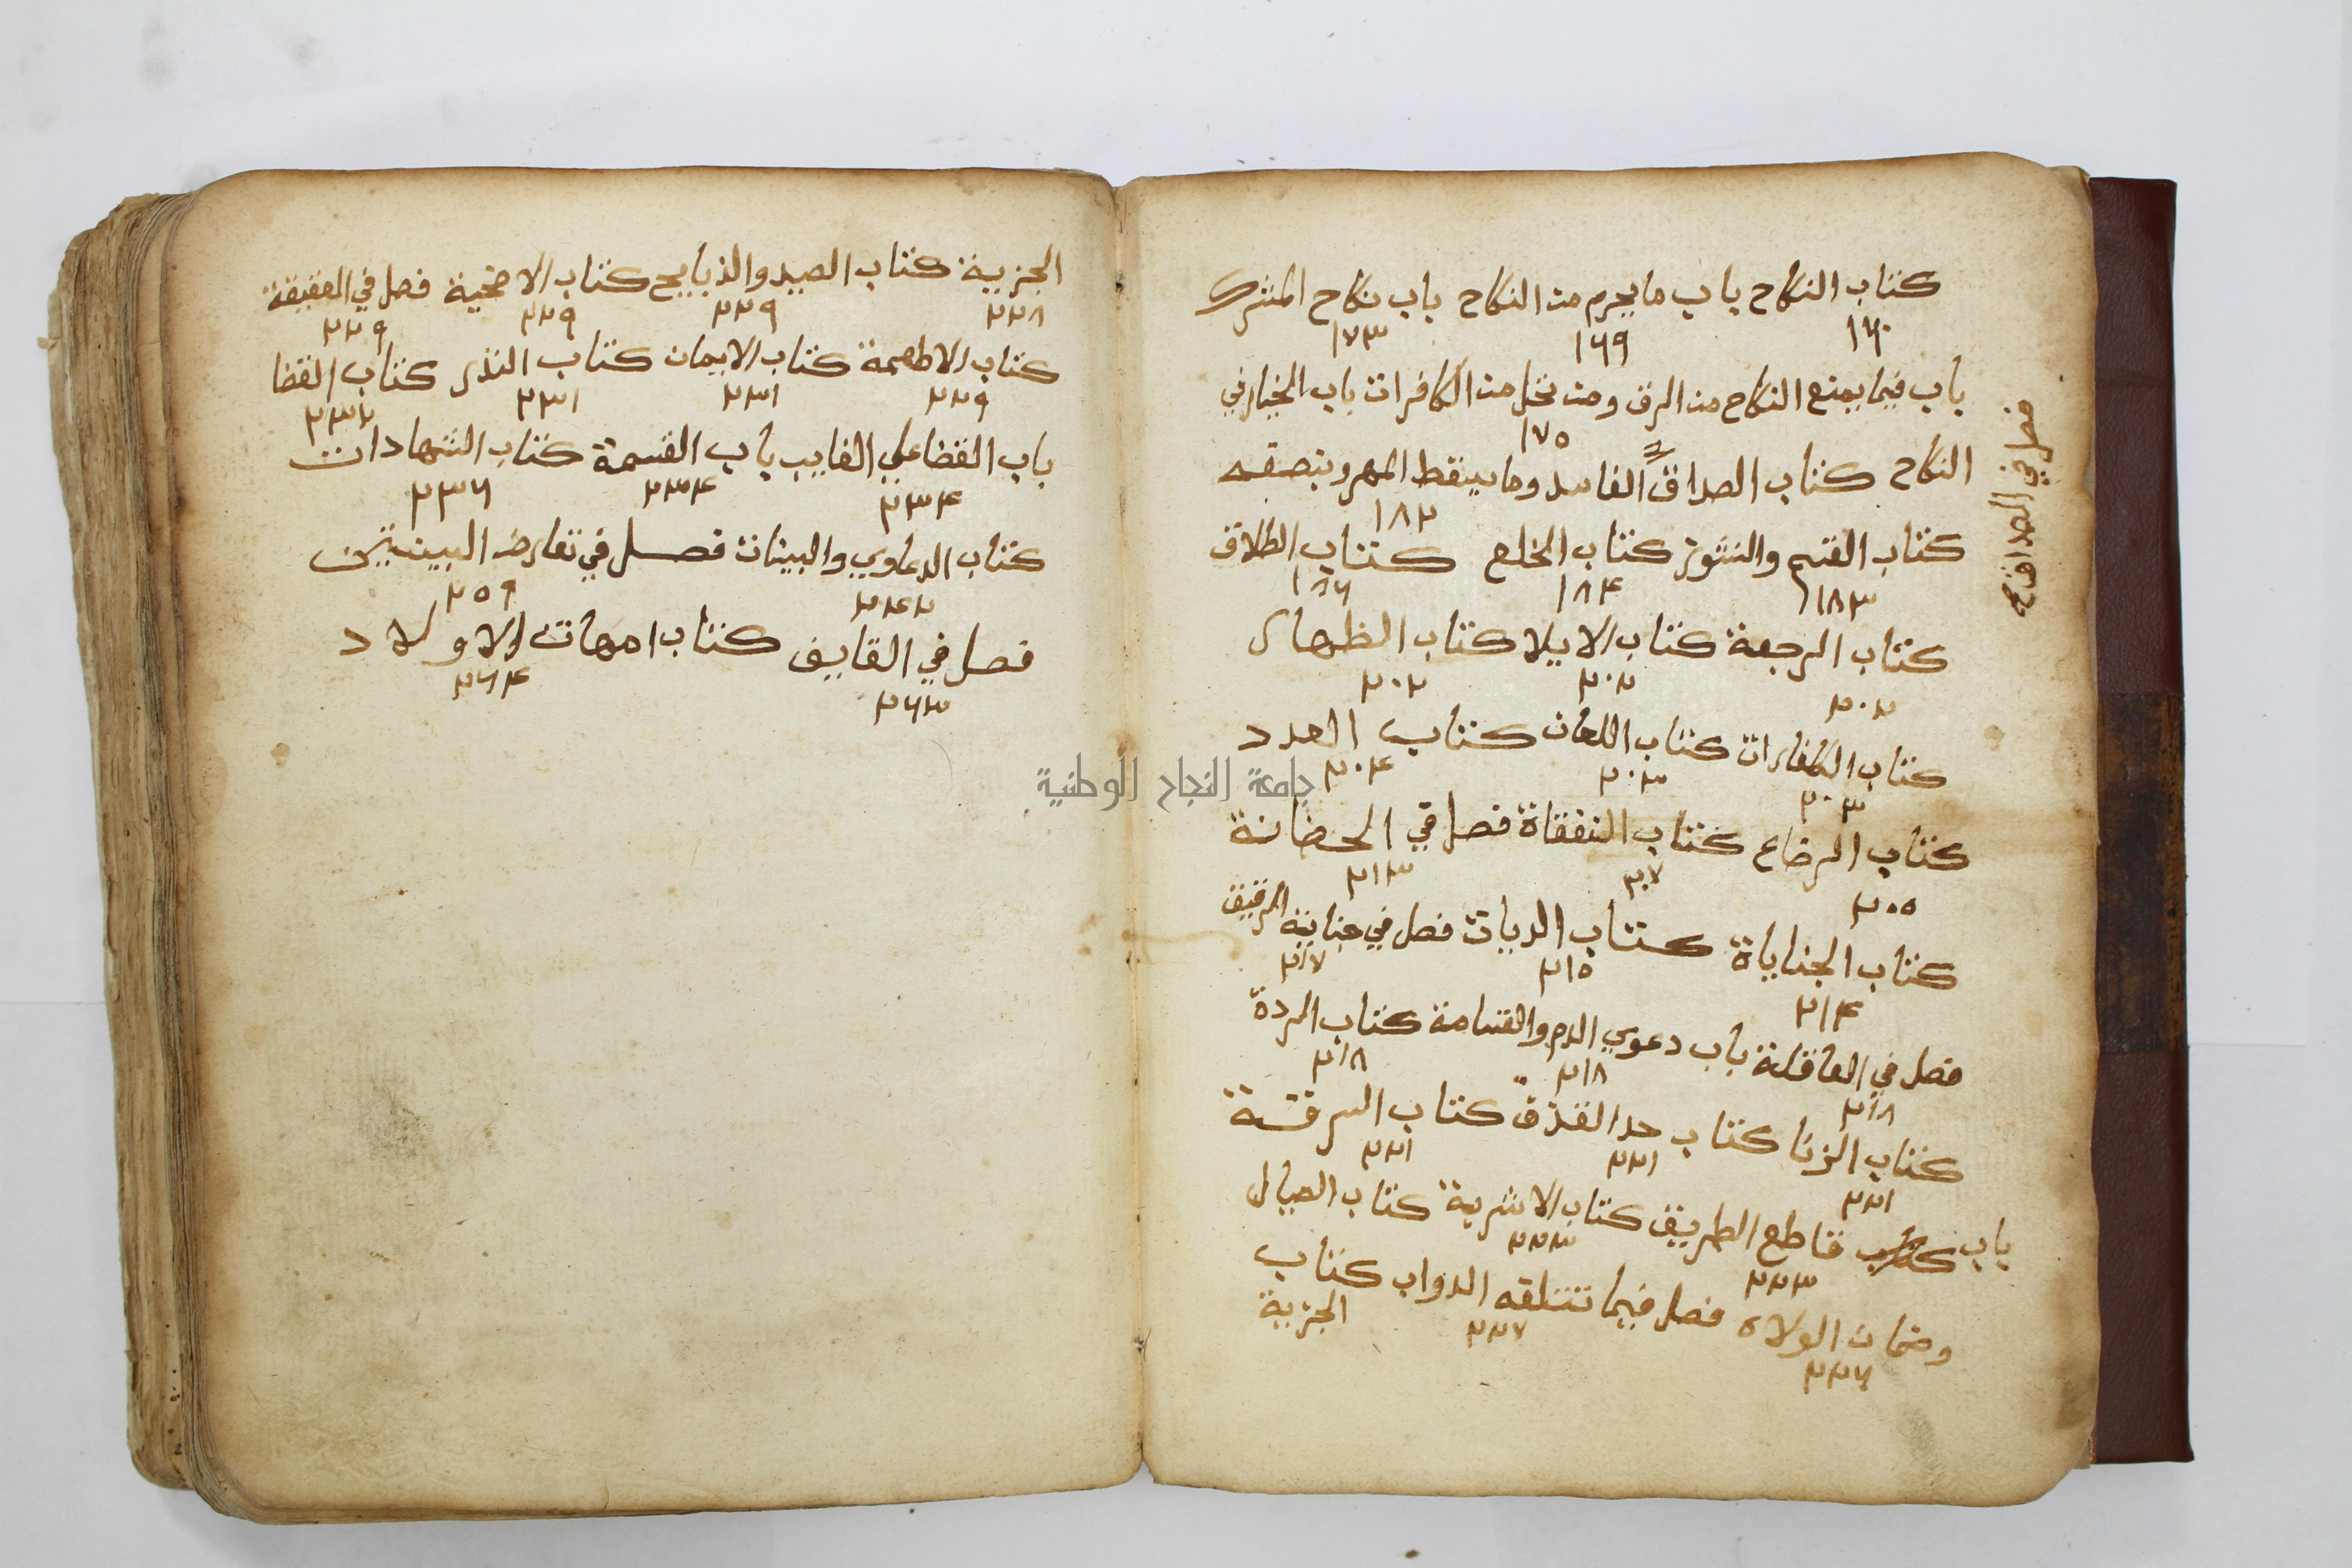 كتاب النكاح باب ما يحرم من النكاح باب نكاح المشرك
١٦٠ ١٦٩ ١٧٣
باب فيما يمنع النكاح من الرق ومن تحل من الكافرات باب الخيار في
١٧٥
النكاح كتاب الصداق الفاسد وما يسقط المهر وينصفه
١٨٢
فصل في الصداق
كتاب القسم والنشوز كتاب الخلع كتاب الطلاق
١٨٣ ١٨٤ ١٨٦
كتاب الرجعة كتاب الايلا كتاب الظهار
٢٠٢ ٢٠٢ ٢٠٢
كتاب الكفارات كتاب اللعان كتاب العدد
٢٠٣ ٢٠٣ ٢٠٤
كتاب الرضاع كتاب النفقاة فصل في الحضانة
٢٠٥ ٢٠٧ ٢١٣
كتاب الجناياة كتاب الديات فصل في جناية الرقيق
٢١٤ ٢١٥ ٢١٧
فصل في العاقلة باب دعوي الدم والقسامة كتاب الردة
٢١٨ ٢١٨ ٢١٨
كتاب الزنا كتاب حد القذف كتاب السرقة
٢٢١ ٢٢١ ٢٢١
باب كتاب قاطع الطريق كتاب الاشربة كتاب الصيال
٢٢٣ ٢٢٣
وضمان الولاه فصل فيما تتلفه الدواب كتاب
٢٢٦ ٢٢٧
الجزية
الجزية كتاب الصيد والذبايح كتاب الاضحية فصل في العقيقة
٢٢٨ ٢٢٩ ٢٢٩ ٢٢٩
كتاب الاطعمة كتاب الايمان كتاب النذر كتاب القضا
٢٢٩ ٢٣١ ٢٣١ ٢٣٢
باب القضا علي الغايب باب القسمة كتاب الشهادات
٢٣٤ ٢٣٤ ٢٣٦
كتاب الدعاوي والبينات فصل في تعارض البينتين
٢٤٢ ٢٥٩
فصل في القايف كتاب امهات الاولاد
٢٦٣ ٢٦٤
جامعة النجاح الوطنية